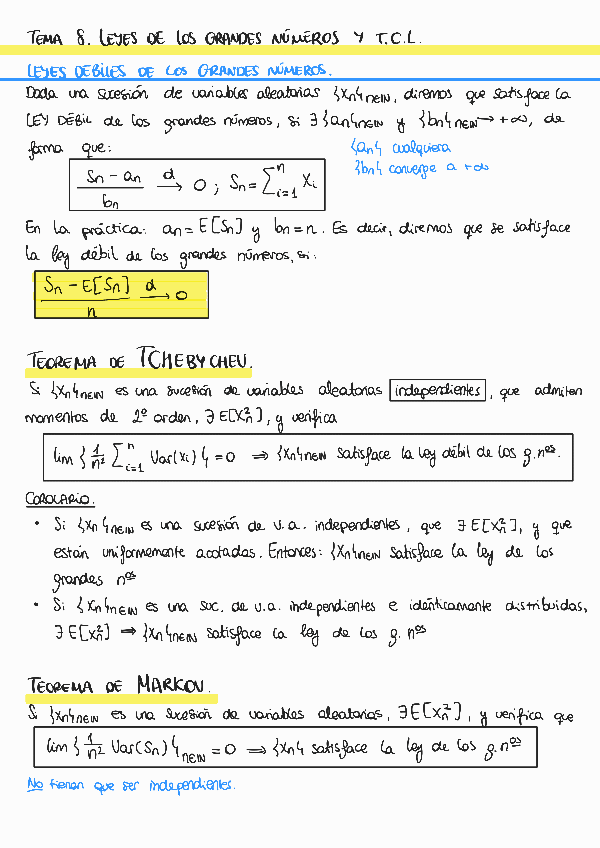 TEMA 8. LEYES DE LOS GRANDES NÚMEROS Y T.C.L.
LEYES DÉBILES DE LOS GRANDES NÚMEROS.
Dada una sucesión de variables aleatorias {Xn}n∈ℕ, diremos que satisface la
LEY DÉBIL de los grandes números, si ∃ {an}n∈ℕ y {bn}n∈ℕ → +∞, de
forma que:
{an} cualquiera
{bn} converge a +∞
(Sn - an)/bn →d 0 ; Sn = Σ_{i=1}^n Xi
En la práctica: an = E[Sn] y bn = n. Es decir, diremos que se satisface
la ley débil de los grandes números, si:
(Sn - E[Sn])/n →d 0
TEOREMA DE TCHEBYCHEV.
Si {Xn}n∈ℕ es una sucesión de variables aleatorias independientes, que admiten
momentos de 2º orden, ∃ E[Xn²], y verifica
lim { 1/n² Σ_{i=1}^n Var(Xi) } = 0 ⇒ {Xn}n∈ℕ satisface la ley débil de los g.nos.
COROLARIO.
• Si {Xn}n∈ℕ es una sucesión de v.a. independientes, que ∃ E[Xn²], y que
están uniformemente acotadas. Entonces: {Xn}n∈ℕ satisface la ley de los
grandes nos
• Si {Xn}n∈ℕ es una suc. de v.a. independientes e idénticamente distribuidas,
∃ E[Xn²] ⇒ {Xn}n∈ℕ satisface la ley de los g. nos
TEOREMA DE MARKOV.
Si {Xn}n∈ℕ es una sucesión de variables aleatorias, ∃ E[Xn²], y verifica que
lim { 1/n² Var(Sn) }n∈ℕ = 0 ⇒ {Xn} satisface la ley de los g.nos
No tienen que ser independientes.